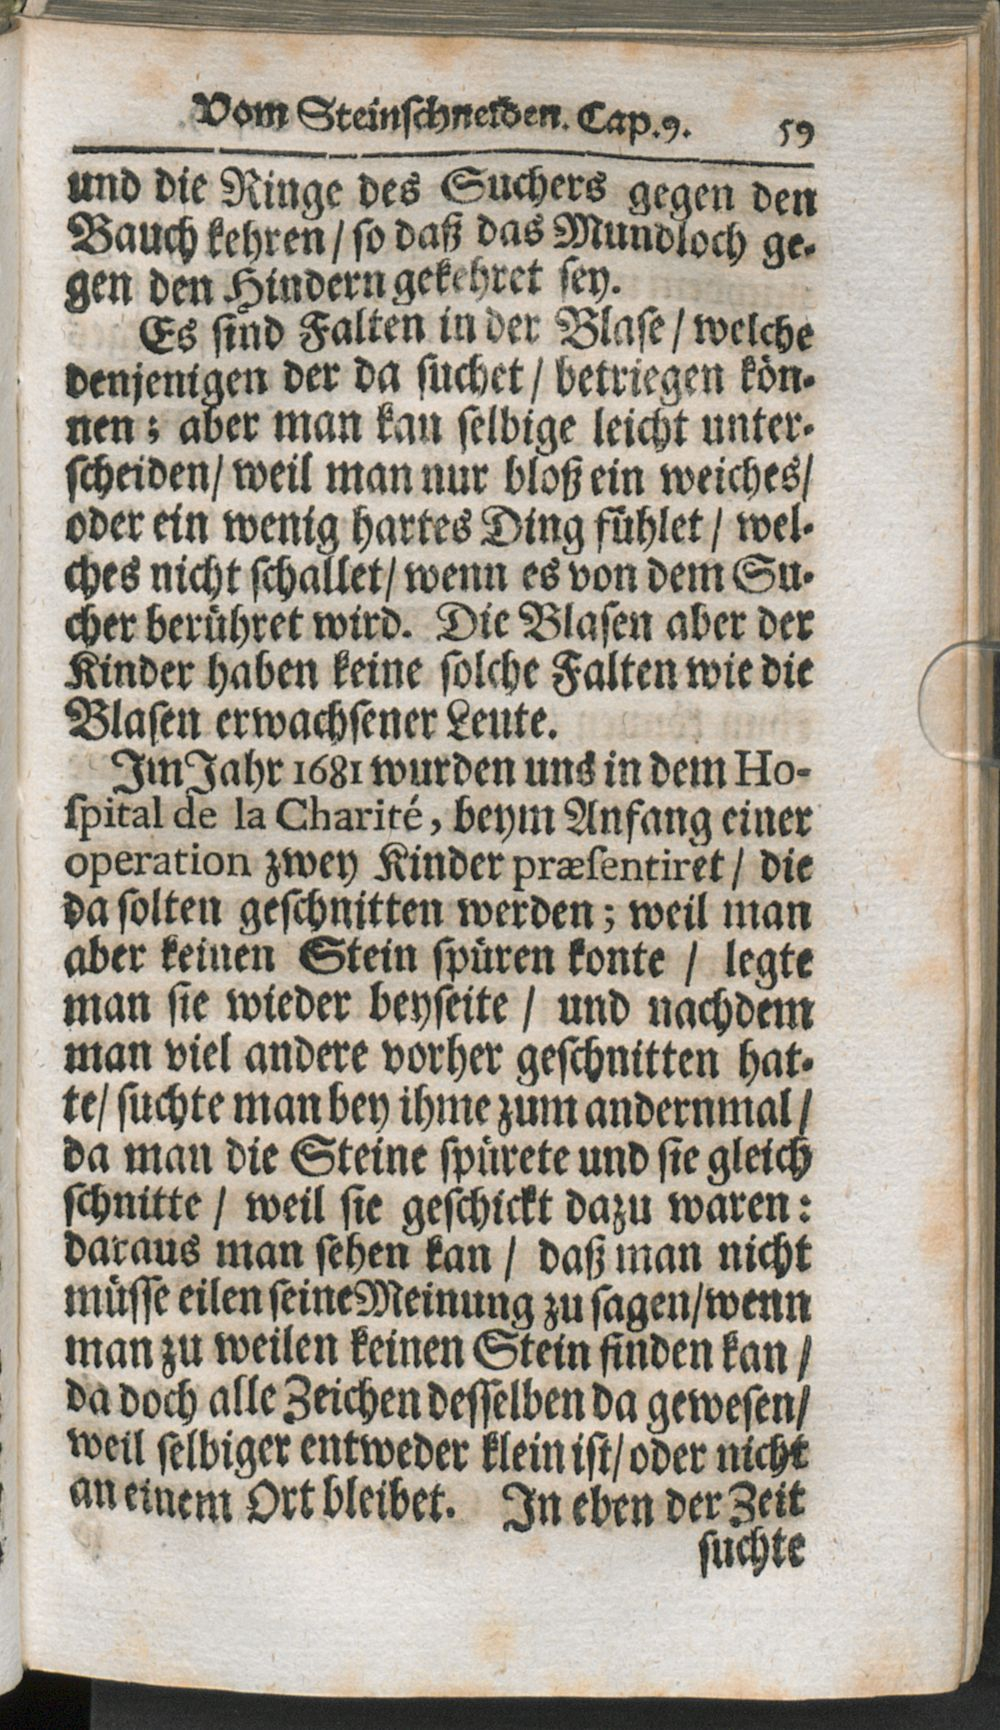 Vom Steinschneiden. Cap. 9. 59
und die Ringe des Suchers gegen den
Bauch kehren / so daß das Mundloch ge-
gen den Hindern gekehret sey.
Es sind Falten in der Blase / welche
denjenigen der da suchet / betriegen kön-
nen; aber man kan selbige leicht unter-
scheiden / weil man nur bloß ein weiches /
oder ein wenig hartes Ding fühlet / wel-
ches nicht schallet / wenn es von dem Su-
cher berühret wird. Die Blasen aber der
Kinder haben keine solche Falten wie die
Blasen erwachsener Leute.
Im Jahr 1681 wurden uns in dem Ho-
spital de la Charité, beym Anfang einer
operation zwey Kinder præsentiret / die
da solten geschnitten werden; weil man
aber keinen Stein spüren konte / legte
man sie wieder beyseite / und nachdem
man viel andere vorher geschnitten hat-
te / suchte man bey ihme zum andernmal /
da man die Steine spürete und sie gleich
schnitte / weil sie geschickt dazu waren:
daraus man sehen kan / daß man nicht
müsse eilen seine Meinung zu sagen / wenn
man zu weilen keinen Stein finden kan /
da doch alle Zeichen desselben da gewesen /
weil selbiger entweder klein ist / oder nicht
an einem Ort bleibet. In eben der Zeit
suchte